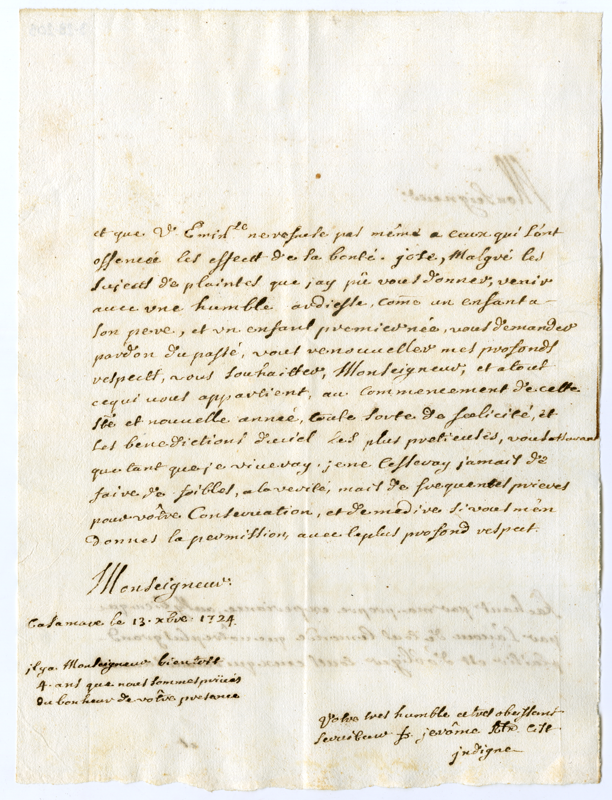 et que V.^e Emin^ce ne refuse pas même a ceux qui l'ont
offencée les effects de sa bonté. j'ose, Malgré les
sujects de plaintes que j'ay pû vous donner, venir
avec vne humble ardiesse, come un enfant a-
son pere, et vn enfant premier née, vous demander
pardon du passé, vous renouveller mes profonds
respects, vous souhaitter, Monseigneur, et a tout
ce qui vous appartient, au commencement de cette
s^te et nouvelle année, toute sorte de foelicité, et
les bénédictions du ciel les plus pretieuses, vous assurant
que tant que je viveray, je ne cesseray jamais de
faire, de foibles, a la verité, mais de frequentes prieres
pour vôtre Conservation, et de me dire si vous m'en
Donnes la permission, avec le plus profond respect.
Monseigneur.
Casamare le 13. xbre. 1724
il y a Monseigneur bientost
4. ans que nous sommes privés
du bonheur de vôtre presence
Votre tres humble et tres obeissant
serviteur f. jerôme Cist
jndigne